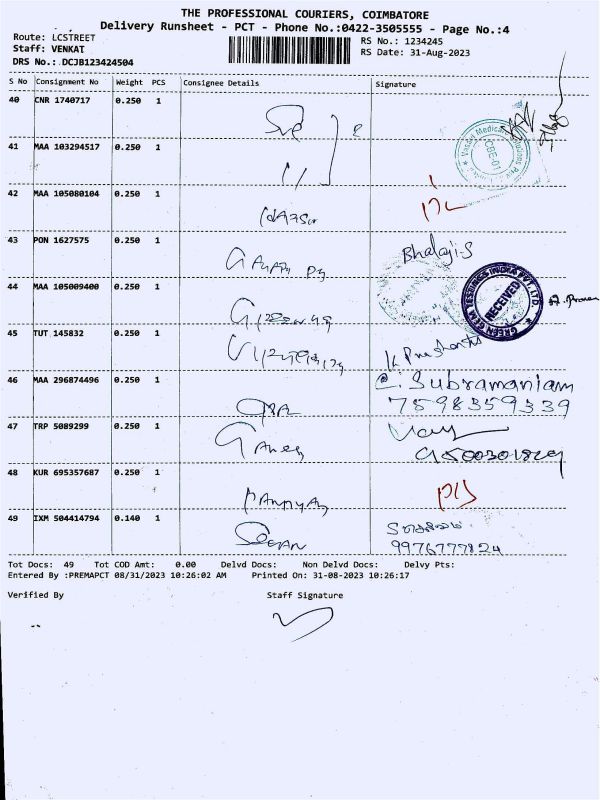 THE PROFESSIONAL COURIERS, COIMBATORE
Delivery Runsheet - PCT - Phone No.:0422-3505555 - Page No.:4
Route: LCSTREET
RS No.: 1234245
Staff: VENKAT
RS Date: 31-Aug-2023
DRS No.: DCJB123424504
S No Consignment No Weight PCS Consignee Details Signature
40 CNR 1740717 0.250 1
41 MAA 103294517 0.250 1
CBE-01
42 MAA 105080104 0.250 1
43 PON 1627575 0.250 1
Bhalaji.S
44 MAA 105009400 0.250 1
GREEN GEM TESTINGS INDIA PVT. LTD.
RECEIVED
45 TUT 145832 0.250 1
K Prashanth
46 MAA 296874496 0.250 1
C. Subramaniam
7598359339
47 TRP 5089299 0.250 1
Ganesh
9500301829
48 KUR 695357687 0.250 1
49 IXM 504414794 0.140 1
9976777824
Tot Docs: 49 Tot COD Amt: 0.00 Delvd Docs: Non Delvd Docs: Delvy Pts:
Entered By :PREMAPCT 08/31/2023 10:26:02 AM Printed On: 31-08-2023 10:26:17
Verified By Staff Signature